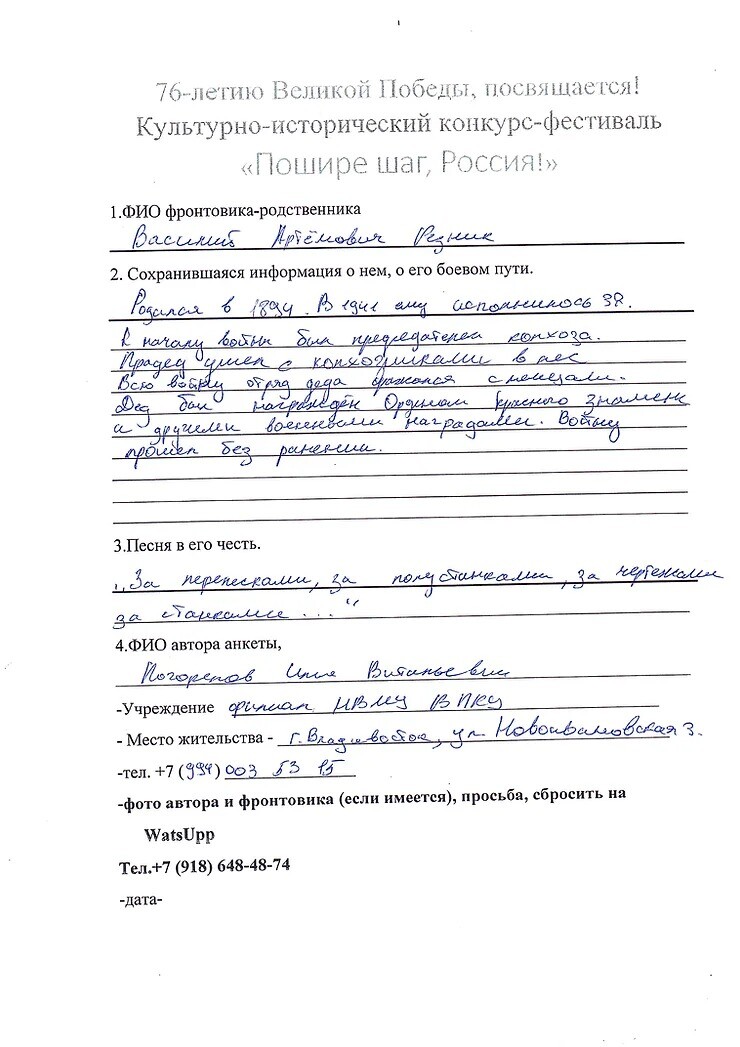 76-летию Великой Победы, посвящается!
Культурно-исторический конкурс-фестиваль
«Пошире шаг, Россия!»
1.ФИО фронтовика-родственника
Василий Артёмович Резник
2. Сохранившаяся информация о нем, о его боевом пути.
Родился в 1894. В 1941 ему исполнилось 38.
К началу войны был председателем колхоза.
Прадед ушел с колхозниками в лес
Всю войну отряд деда сражался с немцами.
Дед был награждён Орденом Красного знамени
и другими военными наградами. Войну
прошел без ранении.
3.Песня в его честь.
„За перелесками, за полустанками, за чертежами
за станками ..."
4.ФИО автора анкеты,
Погорелов Илья Витальевич
-Учреждение филиал НВМУ ВПКУ
- Место жительства - г. Владивосток, ул. Новоивановская 3.
-тел. +7 (994) 003 53 15
-фото автора и фронтовика (если имеется), просьба, сбросить на
WatsUpp
Тел.+7 (918) 648-48-74
-дата-